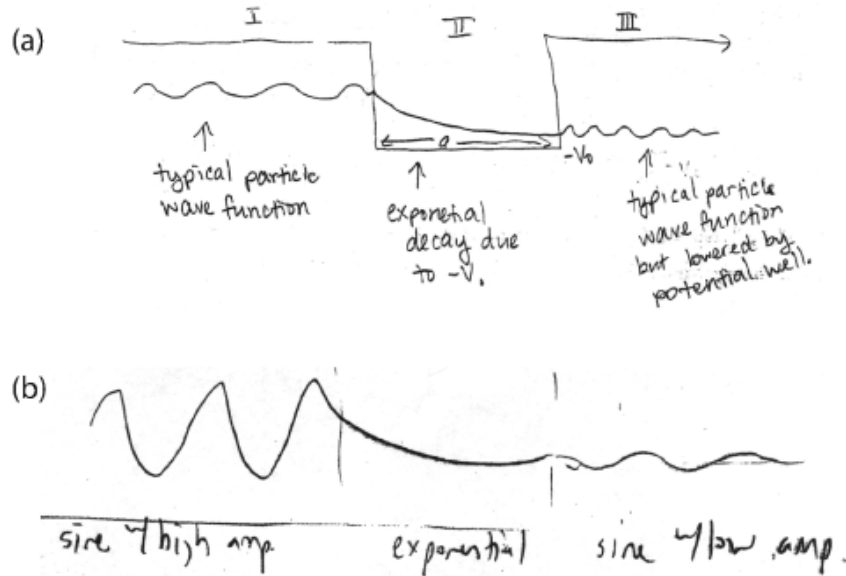 (a)
I
II
III
a
-V₀
typical particle
wave function
exponetial
decay due
to -V.
typical particle
wave function
but lowered by
potential well.
(b)
sine w/high amp.
exponential
sine w/low amp.